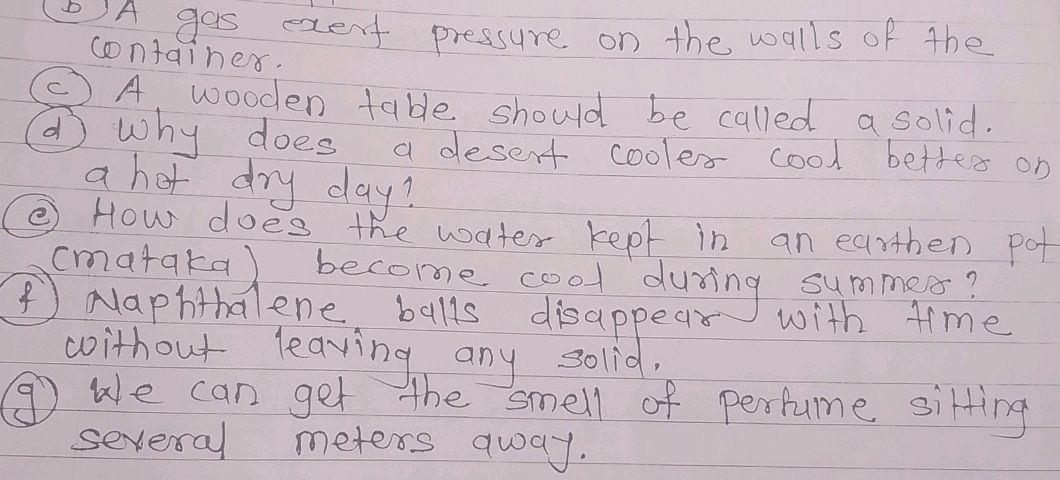 (b) A gas exert pressure on the walls of the
container.
(c) A wooden table should be called a solid.
(d) Why does a desert cooler cool better on
a hot dry day?
(e) How does the water kept in an earthen pot
(mataka) become cool during summer?
(f) Naphthalene balls disappear with time
without leaving any solid.
(g) We can get the smell of perfume sitting
several meters away.